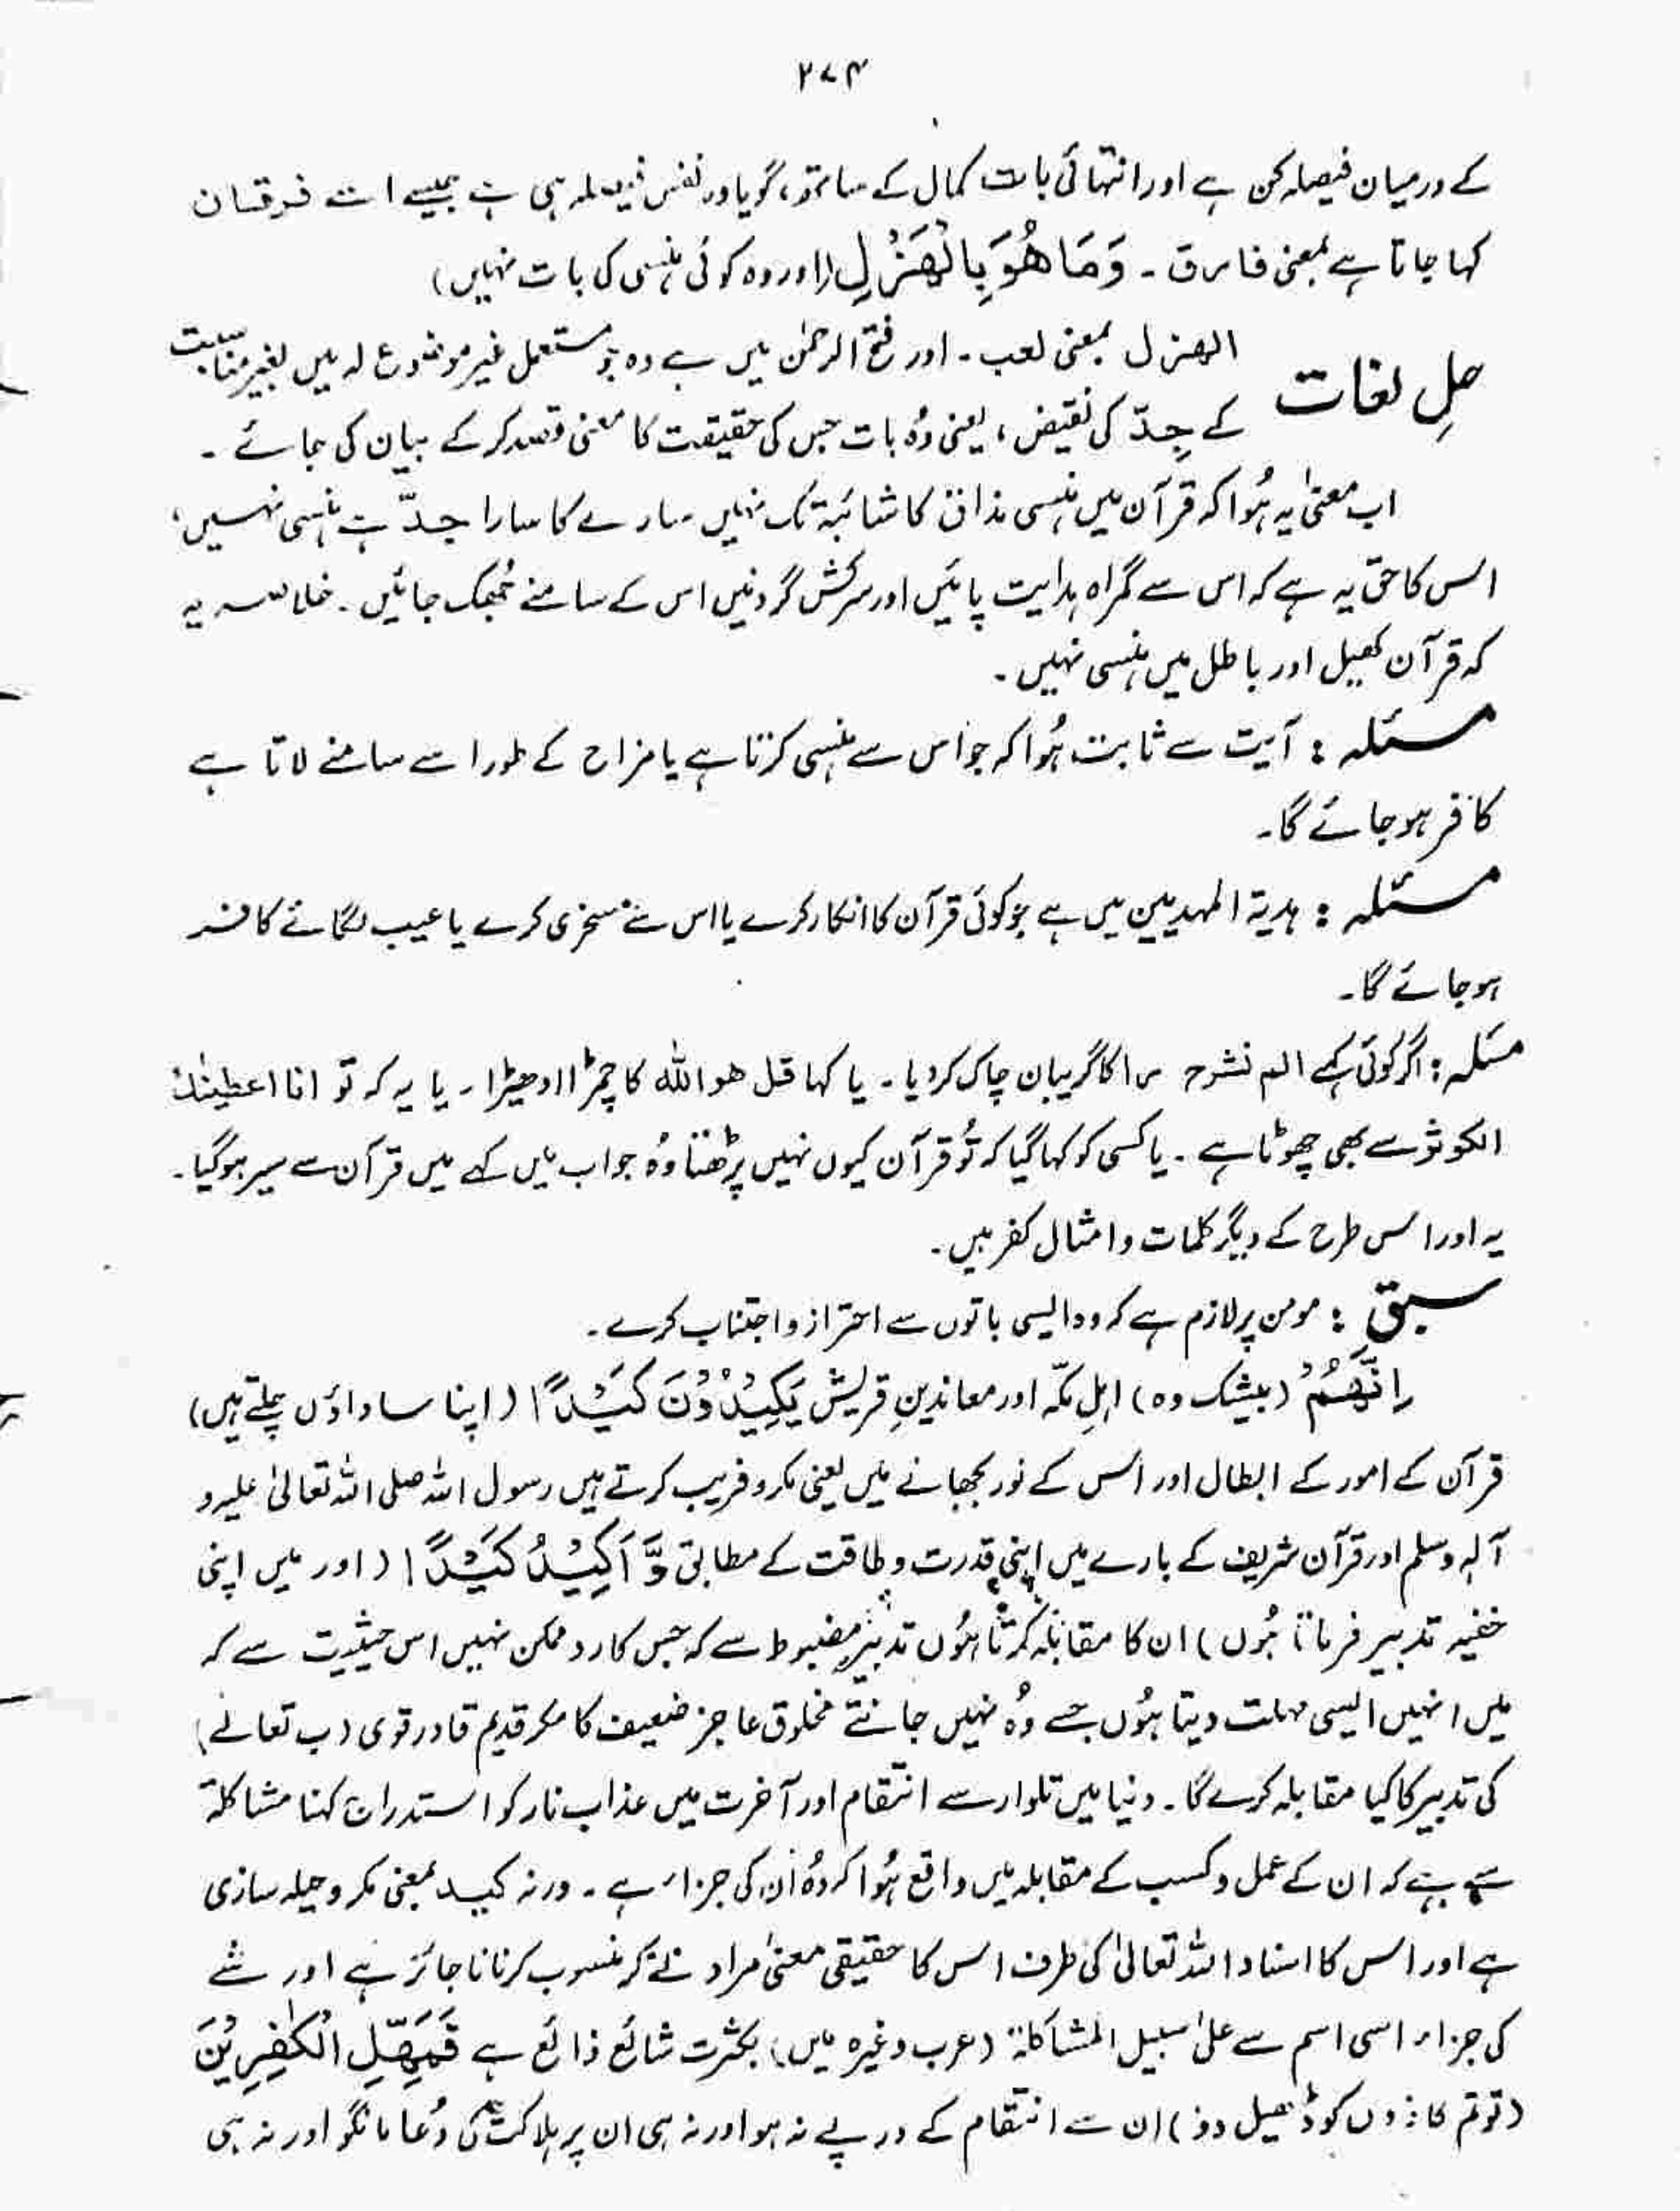 ۲۷۴
کے درمیان فیصلہ کن ہے اور انتہائی بات کمال کے ساتھ، گویا وہ نفس فیصلہ ہی ہے جیسے اسے فرقان
کہا جاتا ہے بمعنی فارق ۔ وَمَا هُوَ بِالْهَزْلِ (اور وہ کوئی ہنسی کی بات نہیں)
حلِ لغات الھزل بمعنی لعب ۔ اور فتح الرحمٰن میں ہے وہ جو مستعمل غیر موضوع لہ میں بغیر مناسبت
کے جِدّ کی نقیض ، یعنی وُہ بات جس کی حقیقت کا معنی قصد کر کے بیان کی جائے ۔
اب معنیٰ یہ ہُوا کہ قرآن میں ہنسی مذاق کا شائبہ تک نہیں سارے کا سارا جدّ ہے ہنسی نہیں،
اس کا حق یہ ہے کہ اس سے گمراہ ہدایت پائیں اور سرکش گردنیں اس کے سامنے جُھک جائیں ۔ خلاصہ یہ
کہ قرآن کھیل اور باطل میں ہنسی نہیں ۔
مسئلہ : آیت سے ثابت ہُوا کہ جو اس سے ہنسی کرتا ہے یا مزاح کے طور اسے سامنے لاتا ہے
کافر ہو جائے گا ۔
مسئلہ : ہدیۃ المہدیین میں ہے جو کوئی قرآن کا انکار کرے یا اس سے مسخری کرے یا عیب لگائے کافر
ہو جائے گا ۔
مسئلہ : اگر کوئی کہے الم نشرح را کا گریبان چاک کر دیا ۔ یا کہا قل ھو اللہ کا چمڑا ادھیڑا ۔ یا یہ کہ تو انا اعطینٰک
الکوثر سے بھی چھوٹا ہے ۔ یا کسی کو کہا گیا کہ تُو قرآن کیوں نہیں پڑھتا وُہ جواب میں کہے میں قرآن سے سیر ہو گیا ۔
یہ اور اس طرح کے دیگر کلمات و امثال کفر ہیں ۔
سبق : مومن پر لازم ہے کہ وہ ایسی باتوں سے احتراز و اجتناب کرے ۔
اِنَّهُمْ (بیشک وہ) اہلِ مکّہ اور معاندینِ قریش يَكِيْدُوْنَ كَيْدًا (اپنا سا داؤں چلتے ہیں)
قرآن کے امور کے ابطال اور اس کے نور بجھانے میں یعنی مکر و فریب کرتے ہیں رسول اللہ صلی اللہ تعالیٰ علیہ و
آلہ وسلم اور قرآن شریف کے بارے میں اپنی قدرت و طاقت کے مطابق وَّ اَكِيْدُ كَيْدًا (اور میں اپنی
خفیہ تدبیر فرماتا ہُوں) ان کا مقابلہ کرتا ہُوں تدبیرِ مضبوط سے کہ جس کا رد ممکن نہیں اس حیثیت سے کہ
میں انہیں ایسی مہلت دیتا ہُوں جسے وُہ نہیں جانتے مخلوق عاجز ضعیف کا مکر قدیم قادر قوی (ب تعالےٰ)
کی تدبیر کا کیا مقابلہ کرے گا ۔ دنیا میں تلوار سے انتقام اور آخرت میں عذاب نار کو استدراج کہنا مشاکلۃ
سے ہے کہ ان کے عمل و کسب کے مقابلہ میں واقع ہُوا کہ وُہ اُن کی جزاء ہے ۔ ورنہ کید بمعنی مکر و حیلہ سازی
ہے اور اس کا اسناد اللہ تعالیٰ کی طرف اس کا حقیقی معنیٰ مراد لے کر منسوب کرنا ناجائز ہے اور شے
کی جزاء اسی اسم سے علیٰ سبیل المشاکلۃ (عرب وغیرہ میں) بکثرت شائع ذائع ہے فَمَهِّلِ الْكٰفِرِيْنَ
(تو تم کافروں کو ڈھیل دو) ان سے انتقام کے درپے نہ ہو اور نہ ہی ان پر ہلاکت کی دُعا مانگو اور نہ ہی